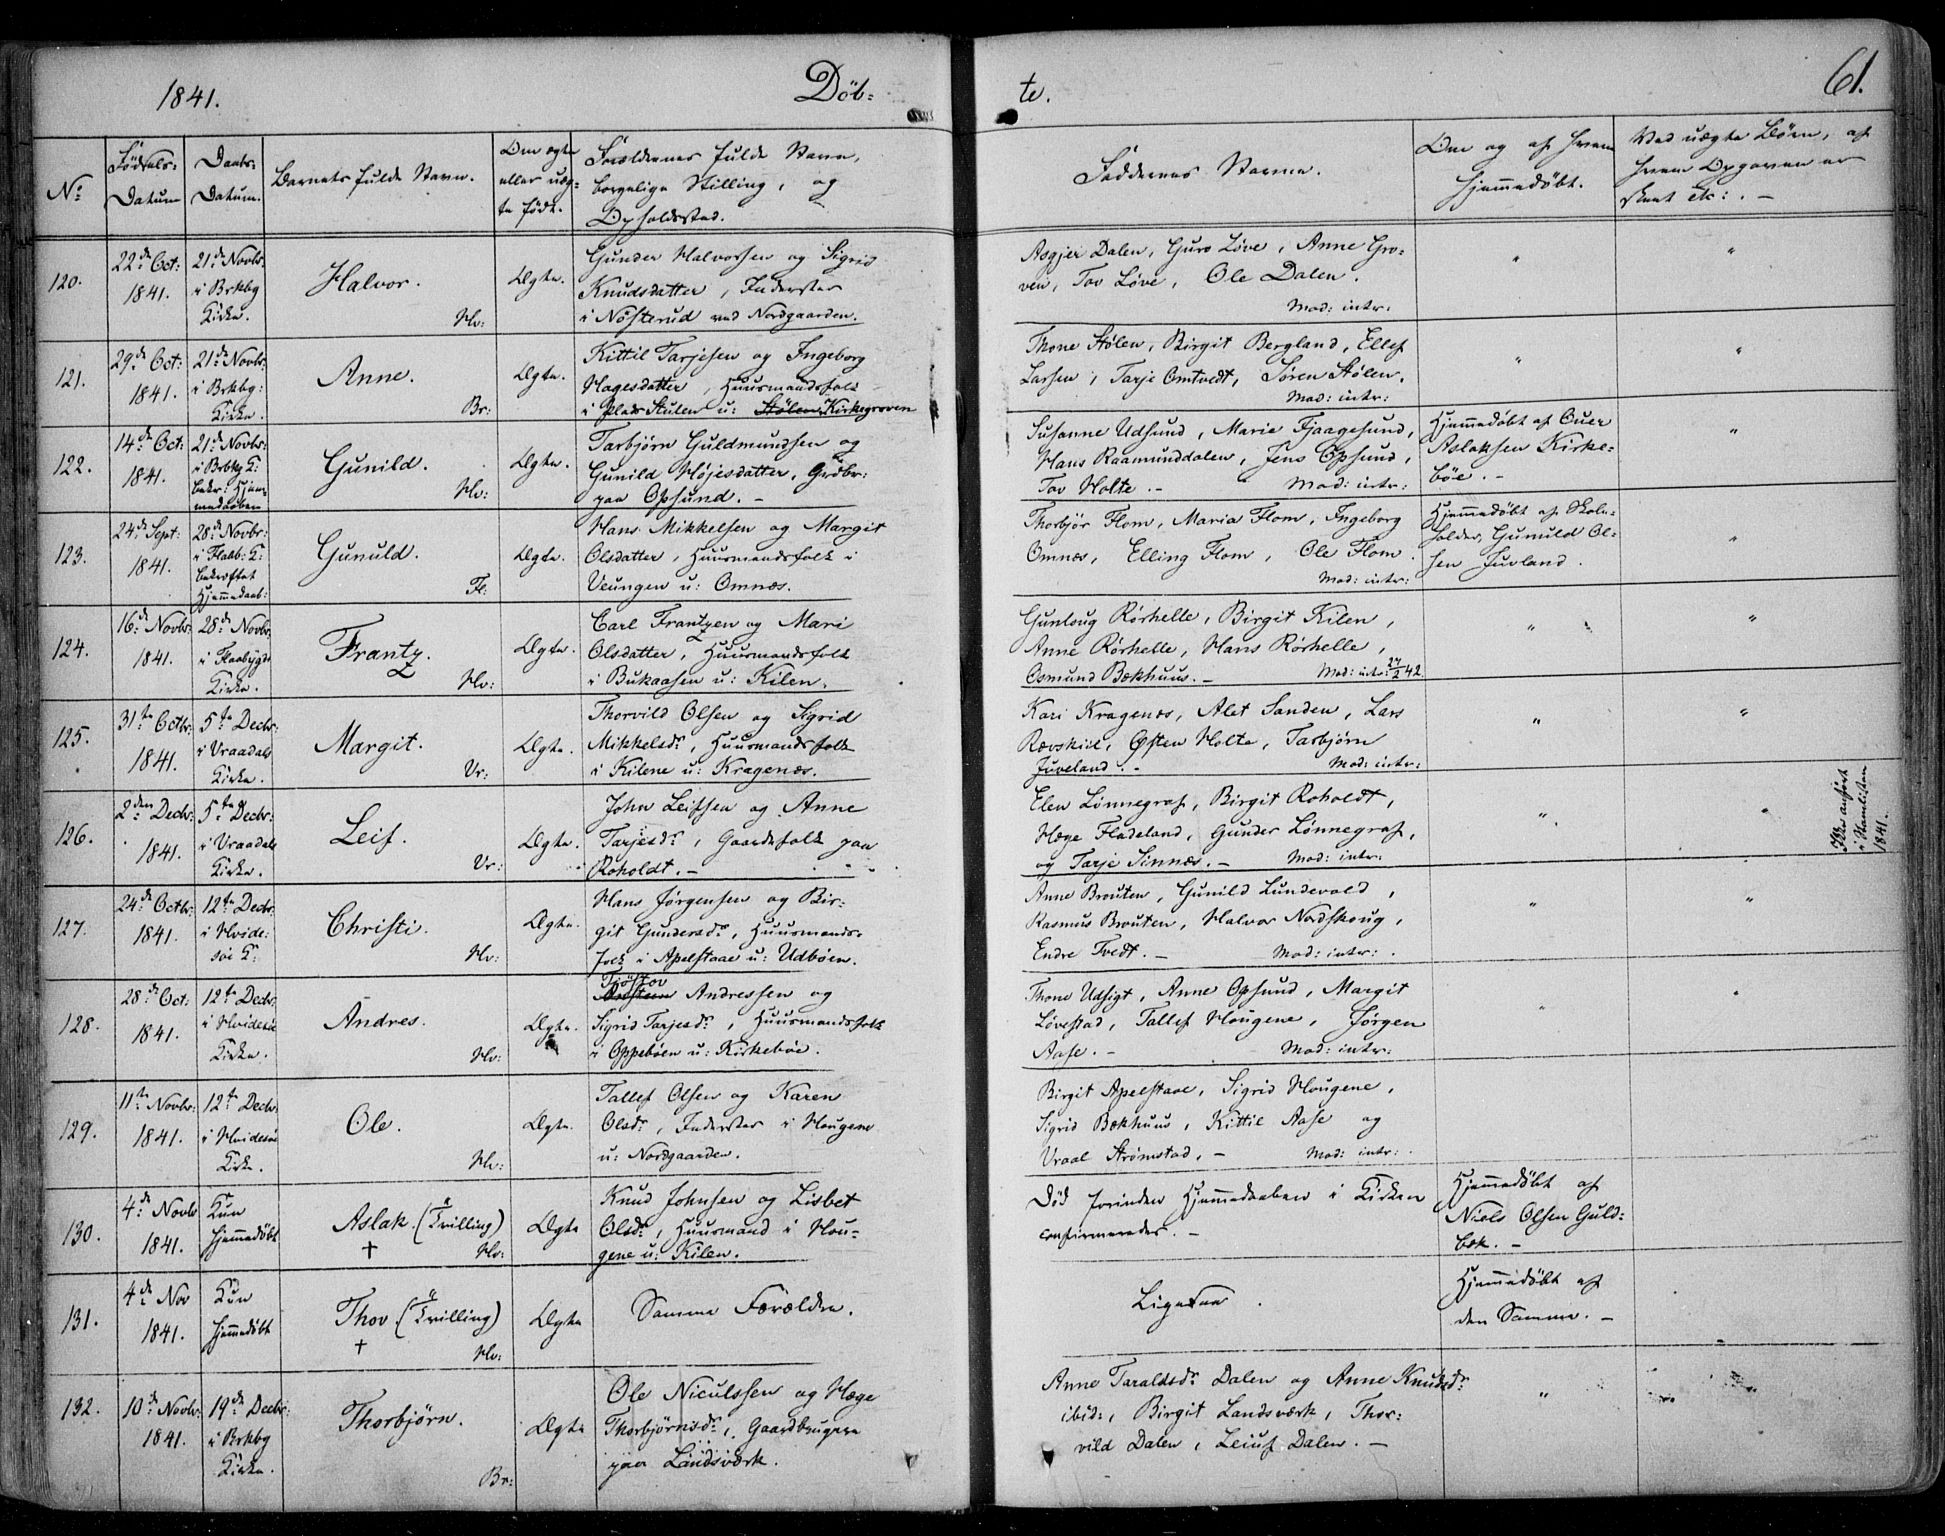 1841.
Döb-
te.
61.
No
Födsels-
Datum
Daabs-
Datum.
Barnets fulde Navn.
Om ægte
eller uæg-
te födt.
Forældrenes fulde Navn,
borgelige Stilling, og
Opholdssted.
Faddernes Navne.
Om og af hvem
hjemmedöbt.
Ved uægte Börn, af
hvem Opgaven er
skeet etc: . -
120.
22de Oct:
1841.
21de Novbr:
i Brkbg
Kirke.
Halvor.
Hv:
Ægte.
Gunder Halvorsen og Sigrid
Knudsdatter, Inderster
i Nösterud ved Nordgaarden.
Asgjer Dalen, Guro Löve, Anne Gro-
ven, Tov Löve, Ole Dalen.
Mod: intr:
"
"
121.
29de Oct:
1841.
21de Novbr:
i Brkbg:
Kirke.
Anne.
Br:
Ægte.
Kittil Tarjesen og Ingeborg
Hagesdatter, Huusmandsfolk
i Plads Stulen u: Stölen Kirkegroven
Thone Stölen, Birgit Bergland, Ellef
Larsen, Tarje Omtvedt, Sören Stölen.
Mod: intr:
"
"
122.
14de Oct:
1841.
21de Novbr:
i Brkbg K:
bekr: Hjem-
medaaben
Gunild.
Hv:
Ægte.
Tarbjörn Guldmundsen og
Gunild Höjesdatter, Grdbr:
paa Opsund. -
Susanne Udsund, Marie Fjaagesund,
Hans Raamunddalen, Jens Opsund,
Tov Holte. - Mod: intr:
Hjemmedöbt af Ouer
Aslaksen Kirke-
böe. -
"
123.
24de Sept:
1841.
28de Novbr:
i Flaab: K:
bekræftet
Hjemmedaab:
Gunuld.
Fl:
Ægte.
Hans Mikkelsen og Margit
Olsdatter, Huusmandsfolk i
Veungen u: Omnæs.
Thorbjör Flom, Maria Flom, Ingeborg
Omnæs, Elling Flom, Ole Flom.
Mod: intr:
Hjemmedöbt af Skole-
holder, Gunuld Ol-
sen Juvland.
"
124.
16de Novbr:
1841.
28de Novbr:
i Flaabygds
Kirke.
Frantz.
Hv:
Ægte.
Carl Frantzen og Mari
Olsdatter, Huusmandsfolk
i Bukaasen u: Kilen.
Gunloug Rörhelle, Birgit Kilen,
Anne Rörhelle, Hans Rörhelle,
Osmund Bækhuus. - Mod: intr: 27/2 42.
"
"
125.
31te Octbr:
1841.
5te Decbr:
i Vraadals
Kirke.
Margit.
Vr:
Ægte.
Thorvild Olsen og Sigrid
Mikkelsdr, Huusmandsfolk
i Kilene u: Kragenæs.
Kari Kragenæs, Alet Sanden, Lars
Rævskiil, Östen Holte, Tarbjörn
Juveland. - Mod: intr:
"
"
126.
2den Decbr:
1841.
5te Decbr:
i Vraadals
Kirke.
Leif.
Vr:
Ægte.
John Leifsen og Anne
Tarjesdr, Gaardsfolk paa
Roholdt. -
Elen Lönnegraf, Birgit Roholdt,
Hæge Fladeland, Gunder Lönnegraf,
og Tarje Sinnæs. - Mod: intr:
"
"
Ikke anfört
i Navnlisten
1841.
127.
24de Octbr:
1841.
12te Decbr:
i Hvide-
söe K:
Christi.
Hv:
Ægte.
Hans Jörgensen og Bir-
git Gundersdr, Huusmands-
folk i Apelstaae u: Udböen.
Anne Brouten, Gunild Lundevold,
Rasmus Brouten, Halvor Nordskoug,
Endre Tvedt. - Mod: intr:
"
"
128.
28de Oct:
1841.
12te Decbr:
i Hvidesöe
Kirke.
Andres.
Hv:
Ægte.
Tjöstov
Andressen og
Sigrid Tarjesdr, Huusmandsfolk
i Oppeböen u: Kirkeböe.
Thone Udsigt, Anne Opsund, Margit
Lövestad, Tallef Hougene, Jörgen
Aase. - Mod: intr:
"
"
129.
11te Novbr:
1841.
12te Decbr:
i Hvidesöe
Kirke.
Ole.
Hv:
Ægte.
Tallef Olsen og Karen
Olsdr, Inderster i Hougene
u: Nordgaarden.
Birgit Apelstaae, Sigrid Hougene,
Sigrid Bækhuus, Kittil Aase og
Vraal Strömstad. - Mod: intr:
130.
4de Novbr
1841.
Kun
hjemmedöbt
Aslak (Tvilling)
†
Hv:
Ægte
Knud Johnsen og Lisbet
Olsdr, Huusmand i Hou-
gene u: Kilen.
Död forinden Hjemmedaaben i Kirken
confirmeredes. -
Hjemmedöbt af
Niels Olsen Guld-
bæk. -
131.
4de Nov
1841.
Kun
hjemmedöbt
Thov (Tvilling)
†
Hv:
Ægte
Samme Forældre.
Ligesaa.
Hjemmedöbt af
den Samme. -
132.
10de Novbr:
1841.
19de Decbr:
i Brkbg
Kirke.
Thorbjörn.
Br:
Ægte
Ole Niculssen og Hæge
Thorbjörnsdr, Gaardbrugere
paa Landsværk.
Anne Taraldsdr Dalen og Anne Knudsdr
ibid:, Birgit Landsværk, Thor-
vild Dalen, Leiuf Dalen. -
"
"